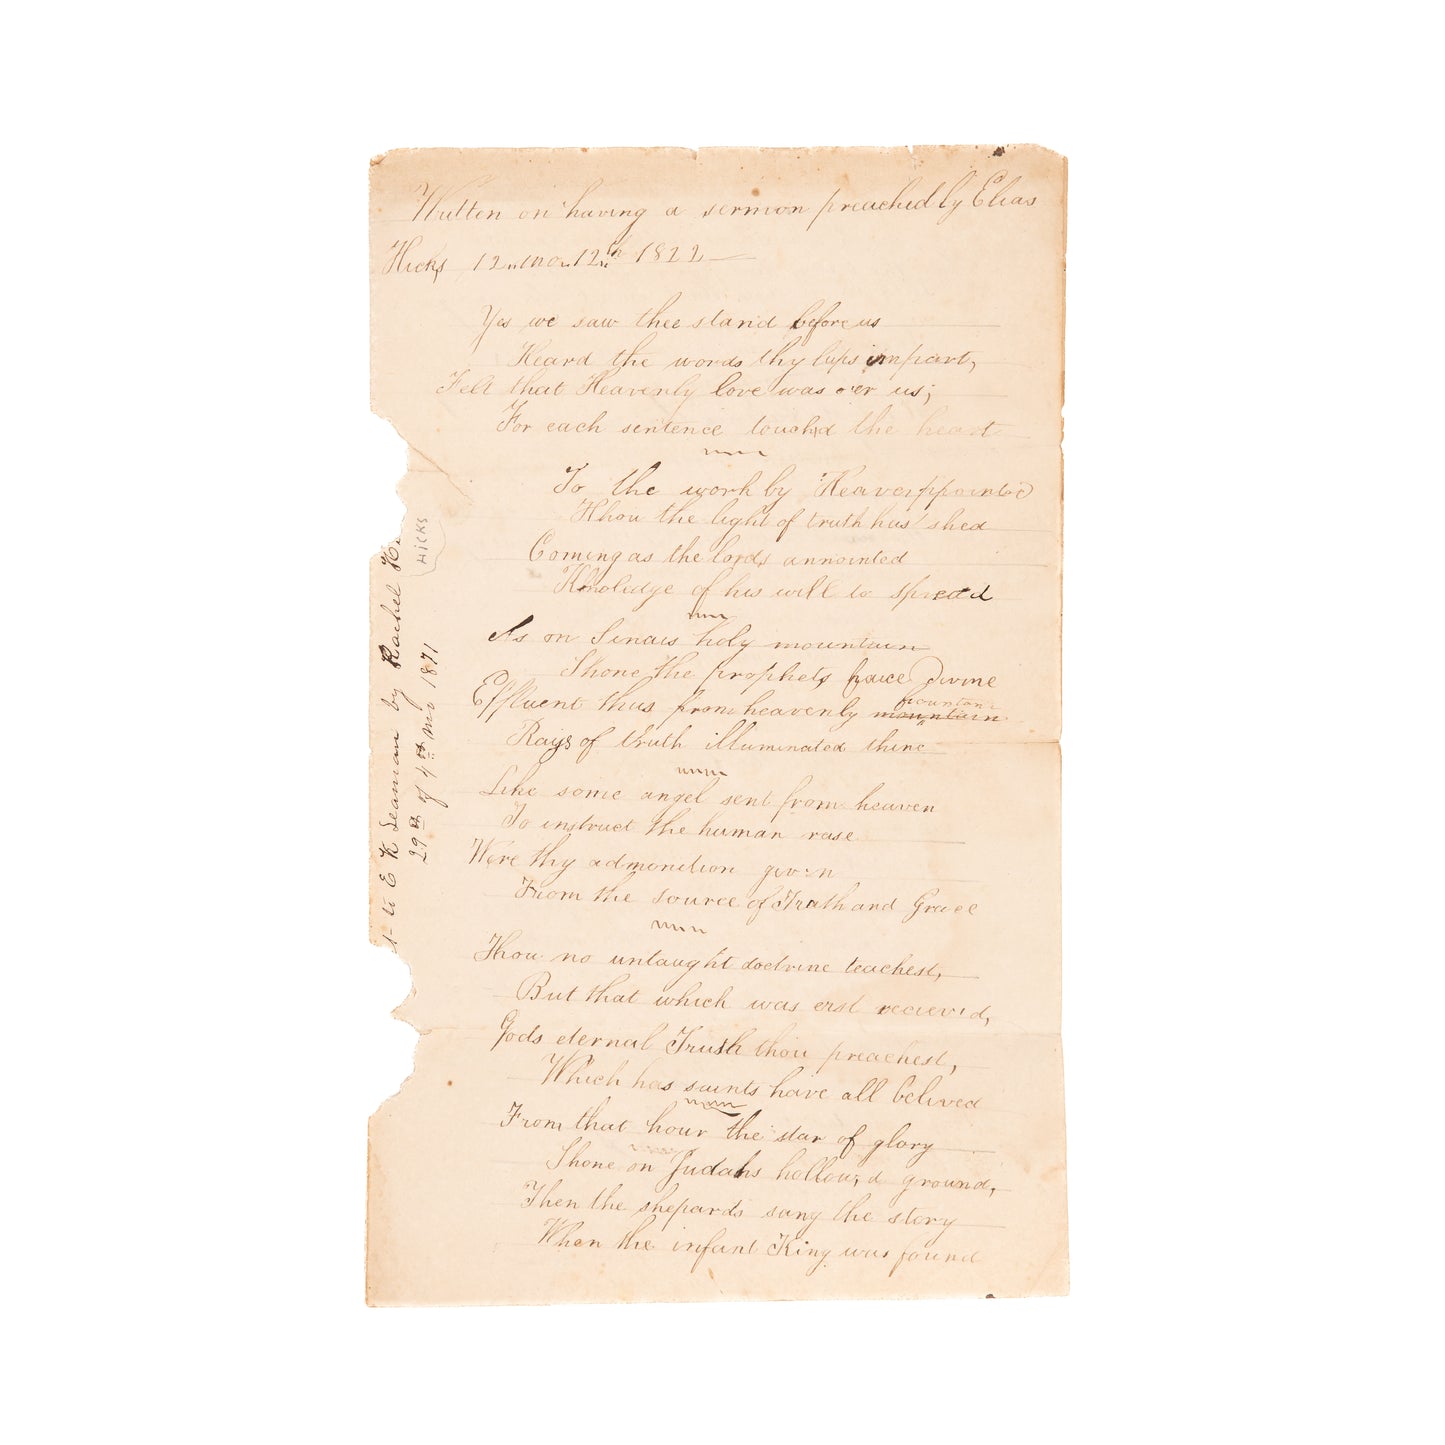 Written on having a sermon preached by Elias
Hicks 12" mo " 12"th 1822
Yes we saw thee stand before us
Heard the words thy lips impart,
Felt that Heavenly love was o'er us;
For each sentence touch'd the heart
To the work by Heaven ppointed
Thou the light of truth has' shed
Coming as the lords annointed
Knoledge of his will to spread
As on Sinais holy mountain
Shone the prophets face divine
Effluent thus from heavenly mountain
fountain
Rays of truth illuminated thine
Like some angel sent from heaven
To instruct the human rase
Were thy admonition given
From the source of Truth and Grace
Thou no untaught doctrine teachest,
But that which was erst reciev'd,
Gods eternal Truth thou preachest,
Which has saints have all belived
From that hour the star of glory
Shone on Judahs hollow'd ground,
Then the shepards sang the story
When the infant King was found
to E K Seaman by Rachel
HICKS
29th of 4th mo 1871